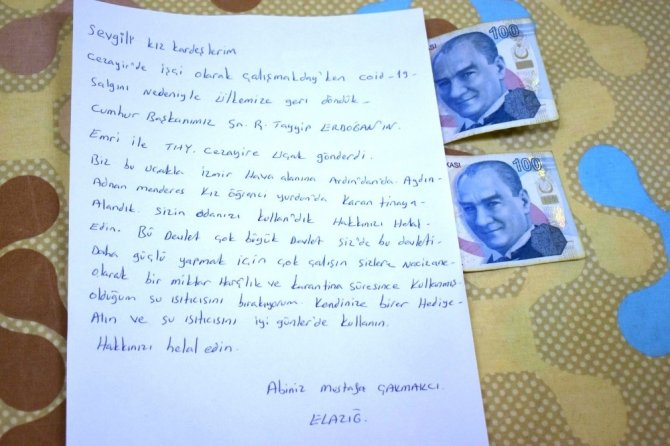 Sevgili kız kardeşlerim
Cezayir'de işçi olarak çalışmakday'ken coid-19-
Salgını nedeniyle ülkemize geri döndük-
Cumhur Başkanımız Sn. R. Tayyip ERDOĞAN'IN.
Emri ile THY. Cezayire Uçak gönderdi.
Biz bu uçakla izmir Hava alanına Ardın'dan'da. Aydın-
Adnan menderes Kız öğrenci yurdun'da Karan tinaya-
Alandık. Sizin odanızı kullan'dık Hakkınızı Helal-
Edin. Bû Devlet çok büyük Devlet siz'de bu devleti-
Daha güçlü yapmak için çok çalışın sizlere Nacizane-
olarak bir miktar Harçlık ve karantina süresince kullanmış-
olduğum su ısıtıcısını bırakıyorum. Kendinize birer Hediye-
Alın ve su ısıtıcısını iyi günler'de kullanın.
Hakkınızı helal edin.
Abiniz Mustafa ÇAKMAKCI.
ELAZIĞ.
100
KASI
100